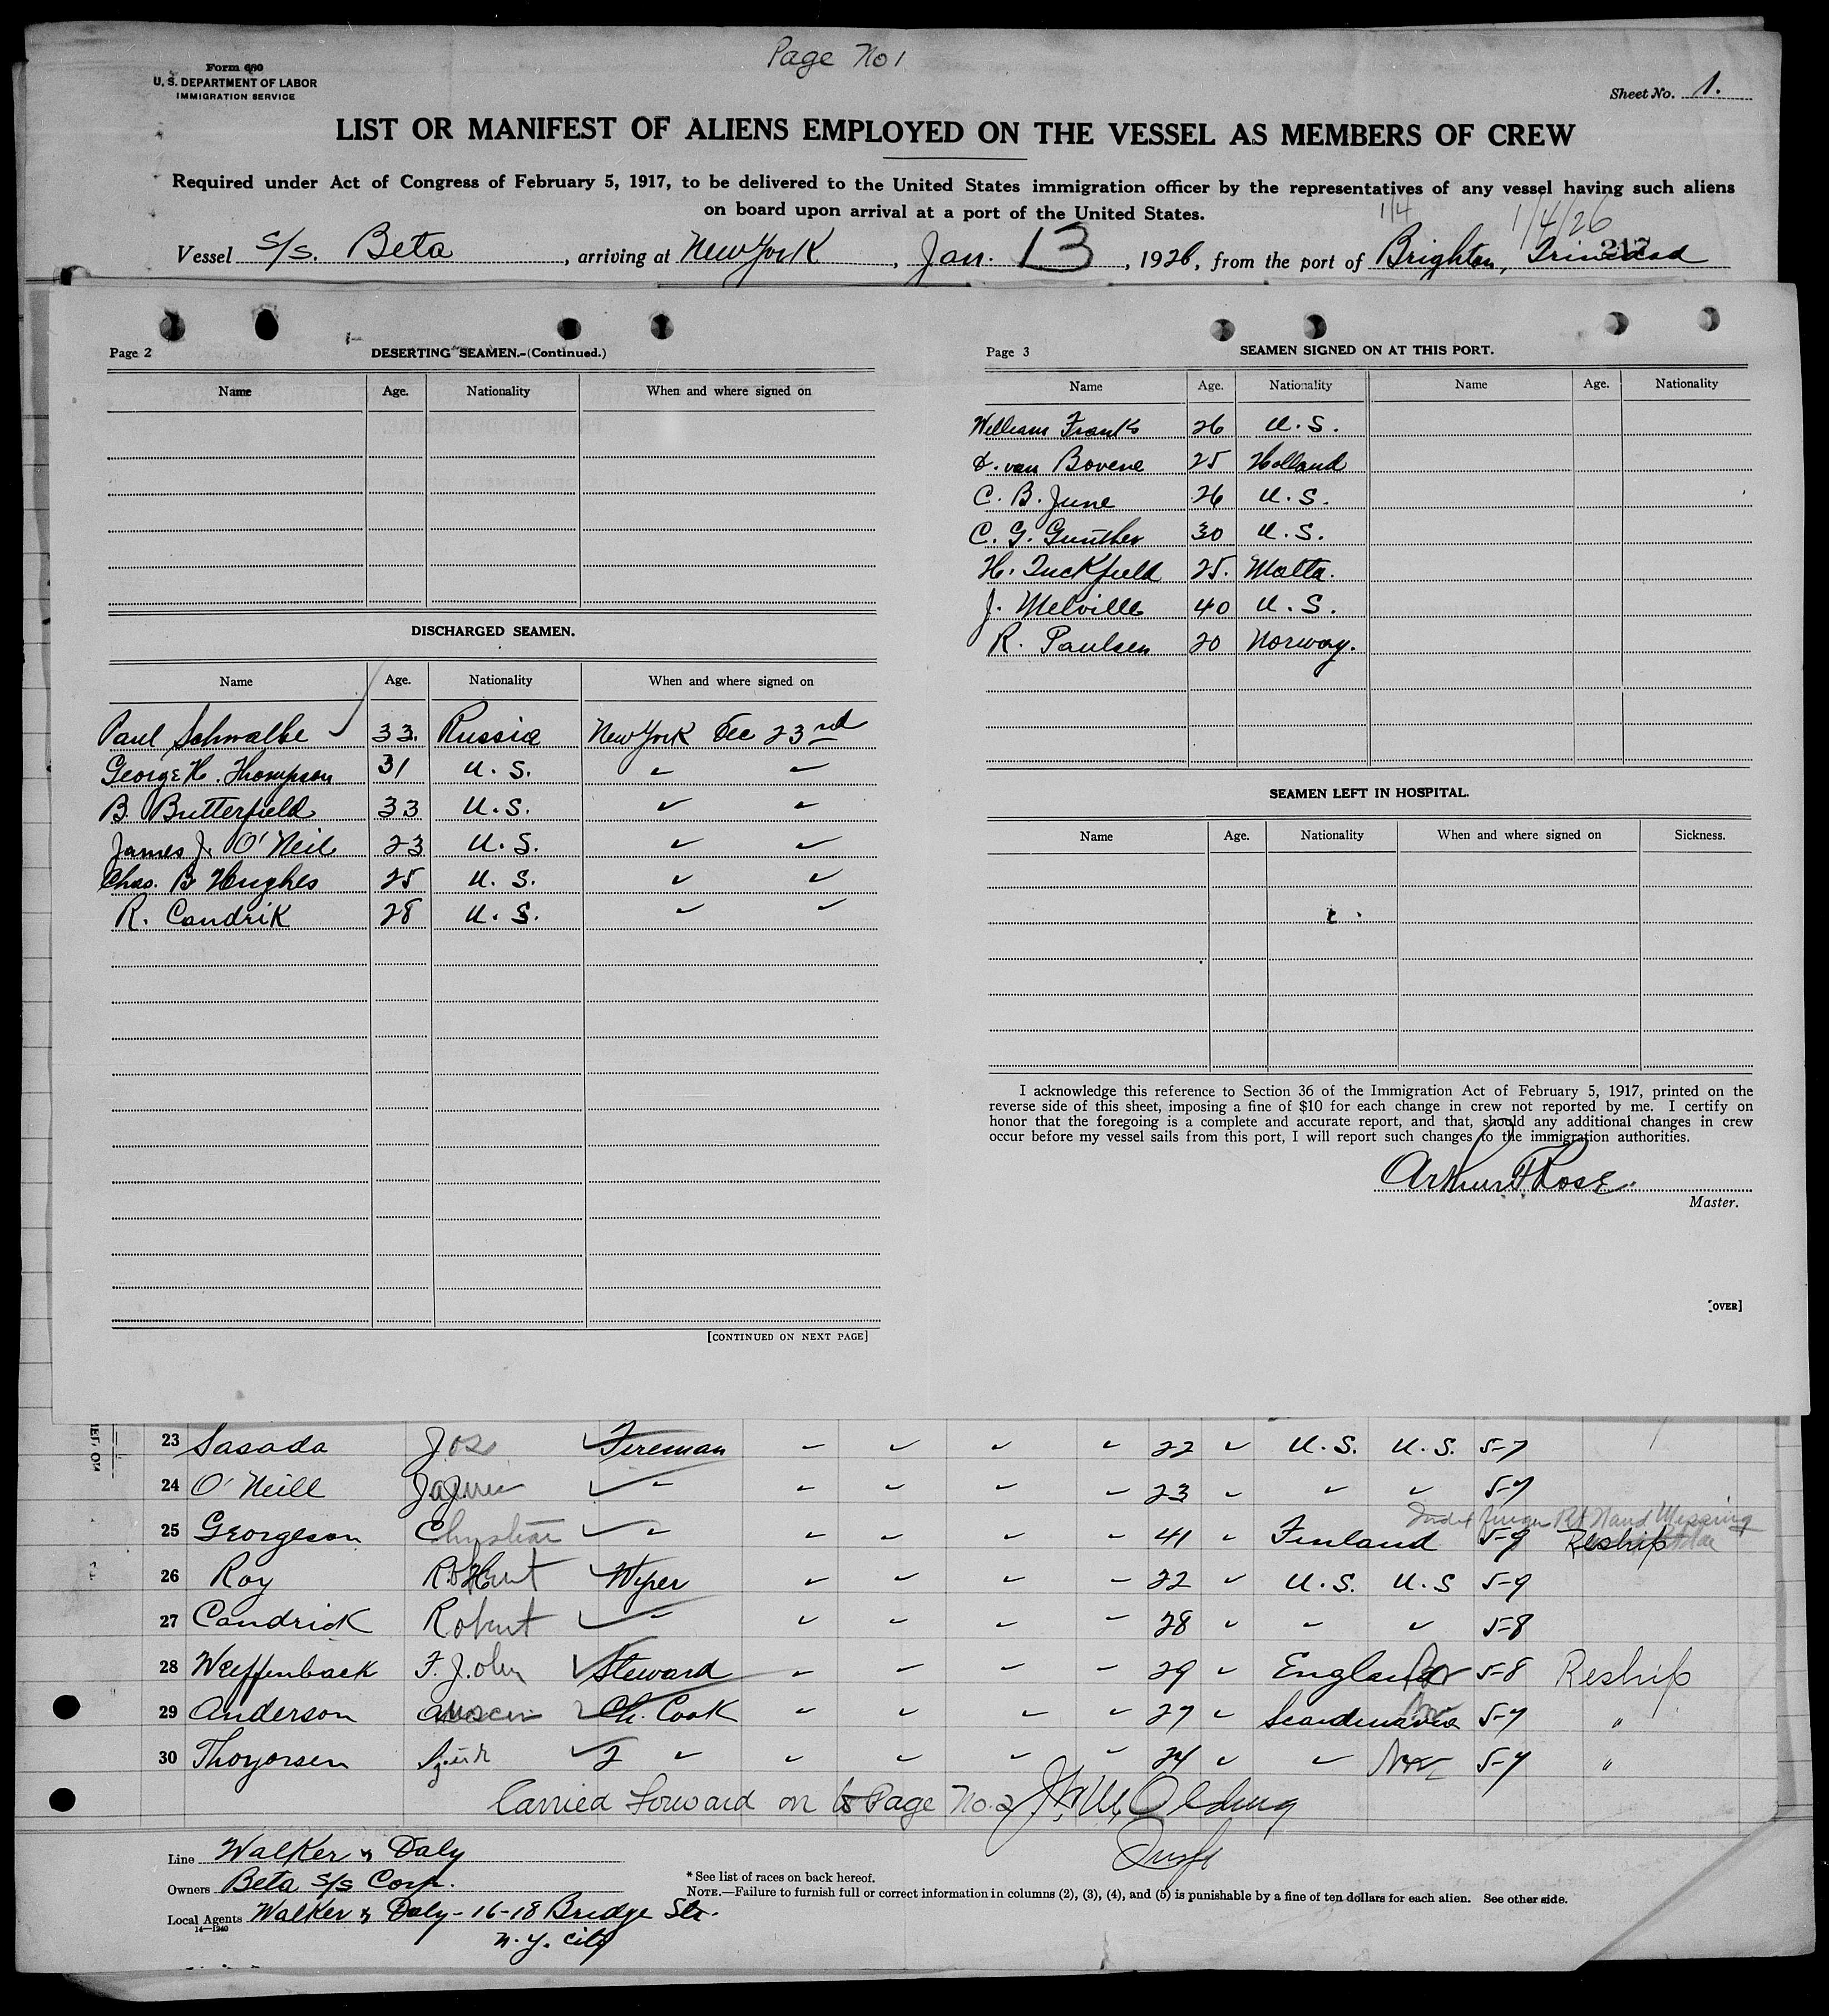 Page No 1
Form 680
U. S. DEPARTMENT OF LABOR
IMMIGRATION SERVICE
Sheet No. 1.
LIST OR MANIFEST OF ALIENS EMPLOYED ON THE VESSEL AS MEMBERS OF CREW
Required under Act of Congress of February 5, 1917, to be delivered to the United States immigration officer by the representatives of any vessel having such aliens
on board upon arrival at a port of the United States.
1/4 1/4/26
Vessel S/S. Beta, arriving at New York, Jan. 13, 1926, from the port of Brighton, Trinidad
Page 2
DESERTING SEAMEN.-(Continued.)
Name Age. Nationality When and where signed on
DISCHARGED SEAMEN.
Name Age. Nationality When and where signed on
Paul Schwalbe 33. Russia New York Dec 23rd
George H. Thompson 31 U. S. " "
B. Butterfield 33 U. S. " "
James J. O'Neil 23 U. S. " "
Chas. B Hughes 25 U. S. " "
R. Candrik 28 U. S. " "
[CONTINUED ON NEXT PAGE]
Page 3
SEAMEN SIGNED ON AT THIS PORT.
Name Age. Nationality Name Age. Nationality
William Franks 26 U. S.
van Bovene 25 Holland
C. B. June 26 U. S.
C. G. Gunther 30 U. S.
H. Tuckfield 25. Malta.
J. Melville 40 U. S.
R. Paulsen 20 Norway.
SEAMEN LEFT IN HOSPITAL.
Name Age. Nationality When and where signed on Sickness.
I acknowledge this reference to Section 36 of the Immigration Act of February 5, 1917, printed on the
reverse side of this sheet, imposing a fine of $10 for each change in crew not reported by me. I certify on
honor that the foregoing is a complete and accurate report, and that, should any additional changes in crew
occur before my vessel sails from this port, I will report such changes to the immigration authorities.
Arthur F. Rose
Master.
[OVER]
23 Sasada Jos Fireman " " " " 22 " U. S. U. S. 5-7
24 O'Neill " " " " " 23 " " " 5-7
Index finger Rt Hand Missing
25 Georgeson Christian " " " " " 41 " Finland 5-9 Reship
26 Roy Robert Wiper " " " " 22 " U. S. U. S 5-9
27 Candrick Robert " " " " " 28 " " " 5-8
28 Weiffenback F. John Steward " " " " 29 " England 5-8 Reship
29 Anderson Ch. Cook " " " " 27 " Scandinavia 5-7 "
30 Thoyorsen 2 " " " " " 24 " " Nor 5-7 "
Carried forward on to Page No. 2
Line Walker & Daly
Owners Beta S/S Corp.
Local Agents Walker & Daly - 16-18 Bridge Str.
N. Y. City
14—1240
* See list of races on back hereof.
NOTE.—Failure to furnish full or correct information in columns (2), (3), (4), and (5) is punishable by a fine of ten dollars for each alien. See other side.